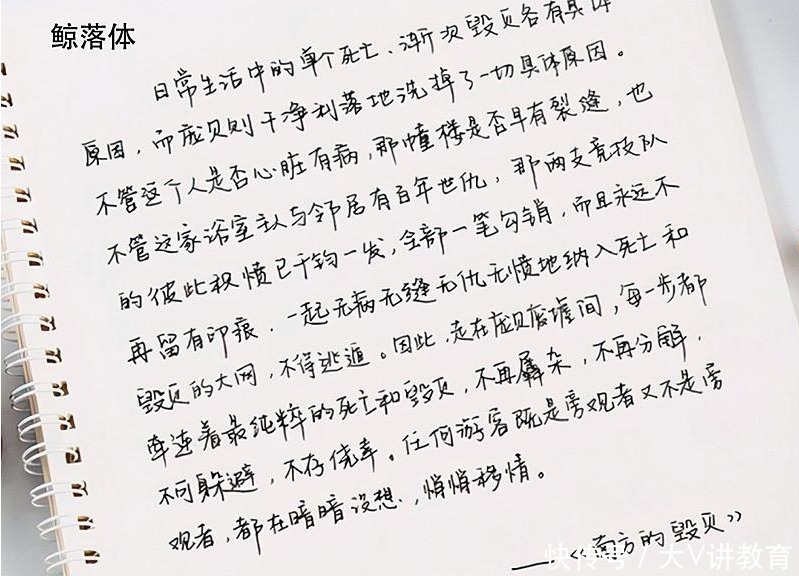 鲸落体
日常生活中的单个死亡、渐次毁灭各有具体
原因，而庞贝则干净利落地洗掉了一切具体原因。
不管这个人是否心脏有病，那幢楼是否早有裂缝，也
不管这家浴室主人与邻居有百年世仇，那两支竞技队
的彼此积愤已千钧一发，全部一笔勾销，而且永远不
再留有印痕．一起无病无缝无仇无愤地纳入死亡和
毁灭的大网，不得逃遁。因此，走在庞贝废墟间，每一步都
牵连着最纯粹的死亡和毁灭，不再羼杂，不再分解．
不可躲避，不存侥幸。任何游客既是旁观者又不是旁
观者，都在暗暗设想．，悄悄移情。
——《南方的毁灭》
快传号 / 大V讲教育